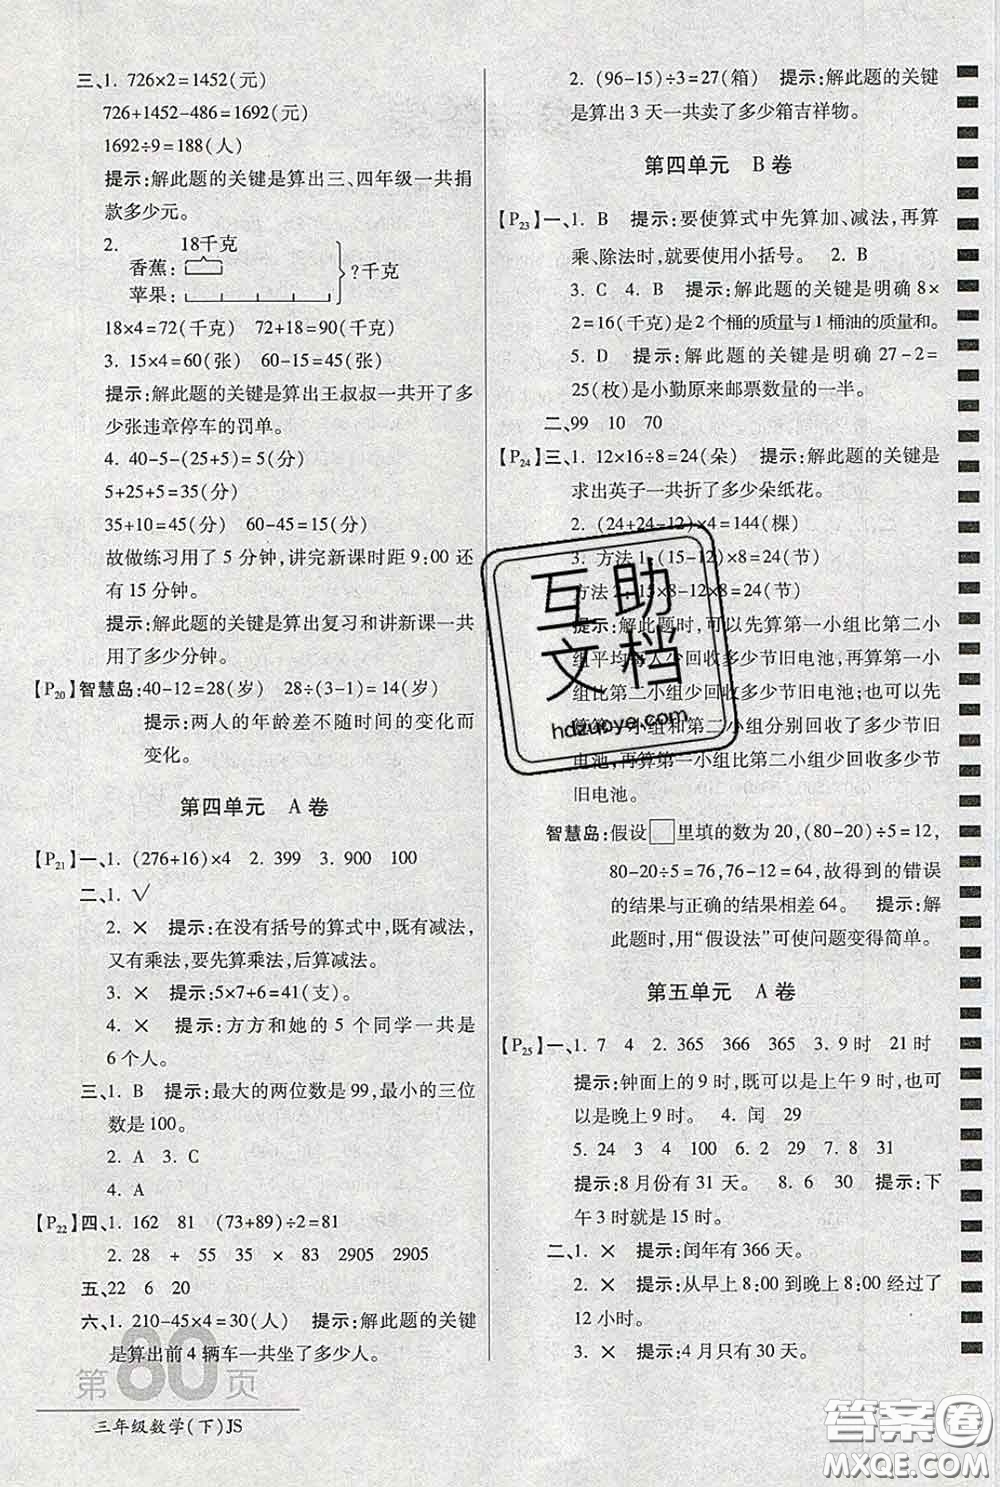 三、1. 726×2=1452(元)
726+1452-486=1692(元)
1692÷9=188(人)
提示:解此题的关键是算出三、四年级一共捐
款多少元。
2. 18千克
香蕉:
?千克
苹果:
18×4=72(千克) 72+18=90(千克)
3. 15×4=60(张) 60-45=15(张)
提示:解此题的关键是算出王叔叔一共开了多
少张违章停车的罚单。
4. 40-5-(25+5)=5(分)
5+25+5=35(分)
35+10=45(分) 60-45=15(分)
故做练习用了 5 分钟,讲完新课时距 9:00 还
有 15 分钟。
提示:解此题的关键是算出复习和讲新课一共
用了多少分钟。
【P20】智慧岛:40-12=28(岁) 28÷(3-1)=14(岁)
提示:两人的年龄差不随时间的变化而
变化。
第四单元 A 卷
【P21】一、1. (276+16)×4 2. 399 3. 900 100
二、1. √
2. × 提示:在没有括号的算式中,既有减法,
又有乘法,要先算乘法,后算减法。
3. × 提示:5×7+6=41(支)。
4. × 提示:方方和她的 5 个同学一共是
6 个人。
三、1. B 提示:最大的两位数是 99,最小的三位
数是 100。
2. A 3. C
4. A
【P22】四、1. 162 81 (73+89)÷2=81
2. 28 + 55 35 × 83 2905 2905
五、22 6 20
六、1. 210-45×4=30(人) 提示:解此题的关键
是算出前 4 辆车一共坐了多少人。
第80页
三年级数学(下)JS
2. (96-15)÷3=27(箱) 提示:解此题的关键
是算出 3 天一共卖了多少箱吉祥物。
第四单元 B 卷
【P23】一、1. B 提示:要使算式中先算加、减法,再算
乘、除法时,就要使用小括号。 2. B
3. C 4. B 提示:解此题的关键是明确 8×
2=16(千克)是 2 个桶的质量与 1 桶油的质量和。
5. D 提示:解此题的关键是明确 27-2=
25(枚)是小勤原来邮票数量的一半。
二、99 10 70
【P24】三、1. 12×16÷8=24(朵) 提示:解此题的关键是
求出英子一共折了多少朵纸花。
2. (24+24-12)×4=144(棵)
3. 方法 1:(15-12)×8=24(节)
方法 2:15×8-12×8=24(节)
提示:解此题时,可以先算第一小组比第二小
组平均每人少回收多少节旧电池,再算第一小
组比第二小组少回收多少节旧电池;也可以先
算第一小组和第二小组分别回收了多少节旧
电池,再算第一小组比第二小组少回收多少节
旧电池。
智慧岛:假设□里填的数为 20,(80-20)÷5=12,
80-20÷5=76,76-12=64,故得到的错误
的结果与正确的结果相差 64。 提示:解
此题时,用“假设法”可使问题变得简单。
第五单元 A 卷
【P25】一、1. 7 4 2. 365 366 365 3. 9 时 21 时
提示:钟面上的 9 时,既可以是上午 9 时,也可
以是晚上 9 时。 4. 闰 29
5. 24 3 4 100 6. 2 1 2 7. 8 31
提示:8 月份有 31 天。 8. 6 30 提示:下
午 3 时就是 15 时。
二、1. × 提示:闰年有 366 天。
2. × 提示:从早上 8:00 到晚上 8:00 经过了
12 小时。
3. × 提示:4 月只有 30 天。
互助
文档
hdzuoye.com
答案卷
MXQE.COM